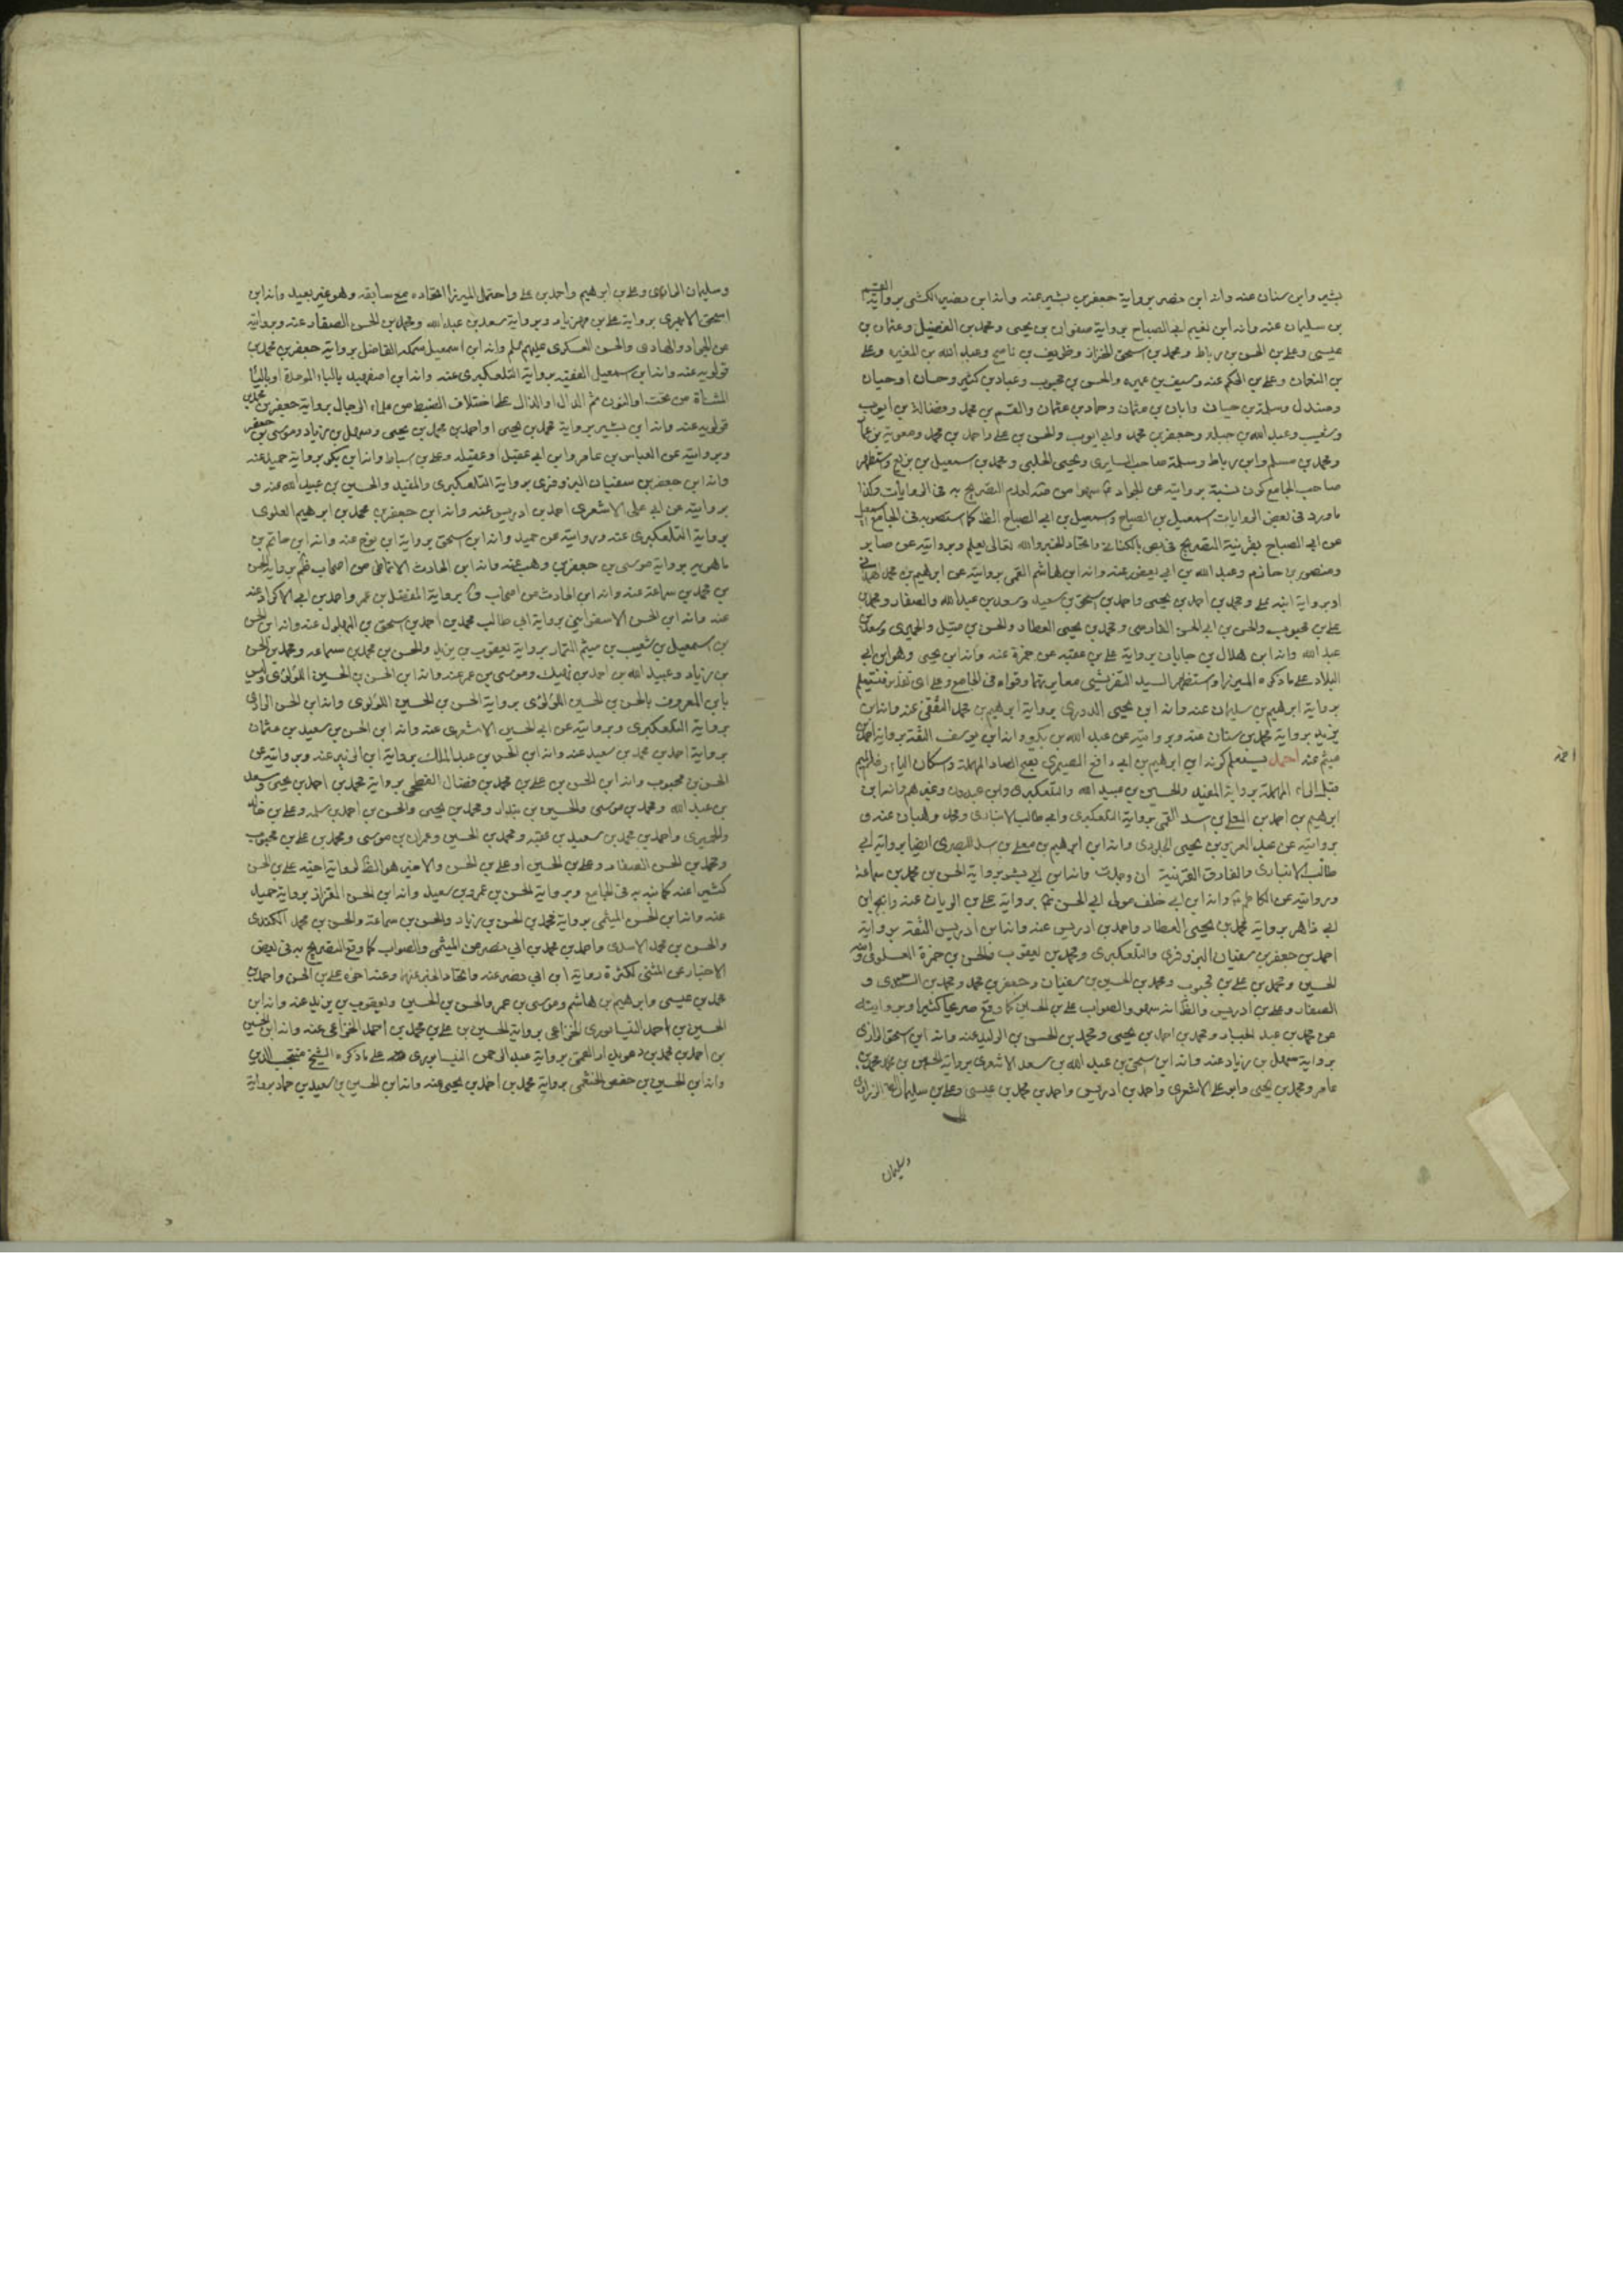 بشير وابن سنان عنه وانه ابن نصر برواية جعفر بن بشير عنه وانه ابن نصير الكشى برواية القسم
بن سليمان عنه وانه ابن نعيم ابى الصباح برواية صفوان بن يحيى ومحمد بن الفضيل وعثمان بن
عيسى وعلى بن الحسن بن رباط ومحمد بن اسحق الخزاز وظريف بن ناصح وعبد الله بن المغيره وعلى
بن النعمان وعلى بن الحكم عنه وسيف بن عميره والحسن بن محبوب وعباد بن كثير وحسان او حيان
وصندل وسلمة بن حيان وابان بن عثمان وحماد بن عثمان والقسم بن محمد وفضالة بن ايوب
وشعيب وعبد الله بن جبله وجعفر بن محمد وابى ايوب والحسن بن على واحمد بن محمد ومعوية بن عمار
ومحمد بن مسلم وابن رباط وسلمة صاحب السابرى ويحيى الحلبى ومحمد بن اسمعيل بن بزيع واستظهر
صاحب الجامع كون نسبة روايته عن الجواد سهوا من لعدم التصريح به فى الروايات وكذا
ماورد فى بعض الروايات اسمعيل بن الصباح واسمعيل بن ابى الصباح الظ كما استصوبه فى الجامع
عن ابى الصباح بقرينة التصريح فى بعض بالكنانى واتحاد الخبر والله تعالى يعلم وبروايته عن صابر
ومنصور بن حازم وعبد الله بن ابى يعفور عنه وانه ابن هاشم القمى بروايته عن ابرهيم بن محمد الهمدانى
او برواية ابنه على ومحمد بن احمد بن يحيى واحمد بن اسحق بن سعيد وسعد بن عبد الله والصفار ومحمد بن
على بن محبوب والحسن بن ابى الحسن الفارسى ومحمد بن يحيى العطار والحسن بن متيل والحميرى وسعد بن
عبد الله وانه ابن هلال بن جابان برواية على بن عقبه عن حمزة عنه وانه ابن يحيى وهو ابن ابى
البلاد على ماذكره الميرزا واستظهر السيد التفريشى معايرتهما وقواه فى الجامع وعلى اى تقدير فيعلم
برواية ابرهيم بن سليمان عنه وانه ابن يحيى الدورى برواية ابرهيم بن محمد الثقفى عنه وانه ابن
يزيد برواية محمد بن سنان عنه وبروايته عن عبد الله بن بكير وانه ابن يوسف الثقة برواية احمد بن
ميثم عنه احمد يعلم كونه ابن ابرهيم بن ابى رافع الصيمرى بفتح الصاد المهملة وسكان الياء وضم الميم
قبل الراء المهملة برواية المفيد والحسين بن عبيد الله والتلعكبرى وابن عبدون وغيرهم وانه ابن
ابرهيم بن احمد بن المعلى بن اسد القمى برواية التلعكبرى وابى طالب الانبارى ومحمد وهبان عنه و
بروايته عن عبد العزيز بن يحيى الجلودى وانه ابن ابرهيم بن معلى بن اسد البصرى ايضا برواية ابى
طالب الانبارى والفارق القرينة ان وجدت وانه ابن ابى بشر برواية الحسن بن محمد بن سماعة
وروايته عن الكاظم وانه ابن ابى خلف مولى ابى الحسن برواية على بن الريان عنه وانه ابن
ابى زاهر برواية محمد بن يحيى العطار واحمد بن ادريس عنه وانه ابن ادريس الثقة برواية
احمد بن جعفر بن سفيان البزوفرى والتلعكبرى ومحمد بن يعقوب والحسن بن حمزة العلوى
الحسين ومحمد بن على بن محبوب ومحمد بن الحسين بن سفيان وجعفر بن محمد ومحمد بن و
الصفار وعلى بن ادريس والظ انه سهو والصواب على بن الحسين كما وقع صريحا كثيرا وبروايته
عن محمد بن عبد الجبار ومحمد بن احمد بن يحيى ومحمد بن الحسن بن الوليد عنه وانه ابن اسحق الرازى
برواية سهل بن زياد عنه وانه ابن اسحق بن عبد الله بن سعد الاشعرى برواية الحسين بن محمد بن
عامر ومحمد بن يحيى وابو على الاشعرى واحمد بن ادريس واحمد بن محمد بن عيسى وعلى بن سليمان الزرارى
وسليمان
وسليمان وعلى بن ابرهيم واحمد بن على واحتمل الميرزا اتحاده مع سابقه وهو غير بعيد وانه ابن
اسحق الابهرى برواية على بن مهزيار وبرواية سعد بن عبد الله ومحمد بن الحسن الصفار عنه وبروايته
عن الجواد والهادى والحسن العسكرى عليهم وانه ابن اسمعيل سمكه الفاضل برواية جعفر بن محمد بن
قولويه عنه وانه ابن اسمعيل الفقيه برواية التلعكبرى عنه وانه ابن اصفهبد بالباء الموحدة او بالياء
المثناة من تحت او النون ثم الدال او الذال على اختلاف الضبط من علماء الرجال برواية جعفر بن محمد بن
قولويه عنه وانه ابن بشير برواية محمد بن يحيى او احمد بن محمد بن يحيى وسهل بن زياد وموسى بن جعفر
وبروايته عن العباس بن عامر وابن ابى عقيل او عقيله وعلى بن اسباط وانه ابن بكر برواية حميد عنه
وانه ابن جعفر بن سفيان البزوفرى برواية التلعكبرى والمفيد والحسين بن عبيد الله عنه و
بروايته عن ابى على الاشعرى احمد بن ادريس عنه وانه ابن جعفر بن محمد بن ابرهيم العلوى
برواية التلعكبرى عنه وبروايته عن حميد وانه ابن اسحق برواية ابن نوح عنه وانه ابن حاتم بن
ماهويه برواية موسى بن جعفر بن وهب عنه وانه ابن الحارث الانماطى من اصحاب برواية الحسن
بن محمد بن سماعة عنه وانه ابن الحارث من اصحاب برواية المفضل بن عمر واحمد بن ابى الاكراد عنه
عنه وانه ابن الحسن الاسفراينى برواية ابى طالب محمد بن احمد بن اسحق بن البهلول عنه وانه ابن الحسن
بن اسمعيل بن شعيب بن ميثم التمار برواية يعقوب بن يزيد والحسن بن محمد بن سماعه ومحمد بن الحسن
بن زياد وعبيد الله بن احمد بن نهيك وموسى بن عمر عنه وانه ابن الحسن بن الحسين اللؤلؤى وليس
بابن المعروف بالحسن بن الحسين اللؤلؤى برواية الحسن بن الحسين اللؤلؤى وانه ابن الحسن الرازى
برواية التلعكبرى وبروايته عن ابى الحسين الاشعرى عنه وانه ابن الحسن بن سعيد بن عثمان
برواية احمد بن محمد بن سعيد عنه وانه ابن الحسن بن عبد الملك برواية ابن الزبير عنه وبروايته عن
الحسن بن محبوب وانه ابن الحسن بن على بن محمد بن فضال الفطحى برواية محمد بن احمد بن يحيى وسعد
بن عبد الله ومحمد بن موسى والحسين بن بندار ومحمد بن يحيى والحسن بن احمد بن سلمه وعلى بن خالد
والحميرى واحمد بن محمد بن سعيد بن عقده ومحمد بن الحسين وعمران بن موسى ومحمد بن على بن محبوب
ومحمد بن الحسن الصفار وعلى بن الحسين او على بن الحسن والاخير هو الظ لرواية اخيه على بن الحسن
كثيرا عنه كما نبه به فى الجامع وبرواية الحسن بن عمرو بن سعيد وانه ابن الحسن القزاز برواية حميد
عنه وانه ابن الحسن الميثمى برواية محمد بن الحسن بن زياد والحسن بن سماعة والحسن بن محمد الكندى
والحسن بن محمد الاسدى واحمد بن محمد بن ابى نصر عن الميثمى والصواب كما وقع التصريح به فى بعض
الاخبار عن المثنى لكثرة رواية ابن ابى نصر عنه واتحاد الخبر عنهما وعنه اخوه على بن الحسن واحمد بن
محمد بن عيسى وابرهيم بن هاشم وموسى بن عمر والحسن بن الحسين ويعقوب بن يزيد عنه وانه ابن
الحسين بن احمد النيسابورى الخزاعى برواية الحسين بن على بن محمد بن احمد الخزاعى عنه وانه ابن الحسين
بن احمد بن محمد بن القمى برواية عبد الرحمن النيسابورى على ماذكره الشيخ منتجب الدين
وانه ابن الحسين بن حفص الخثعمى برواية محمد بن احمد بن يحيى عنه وانه ابن الحسين بن سعيد بن حماد برواية